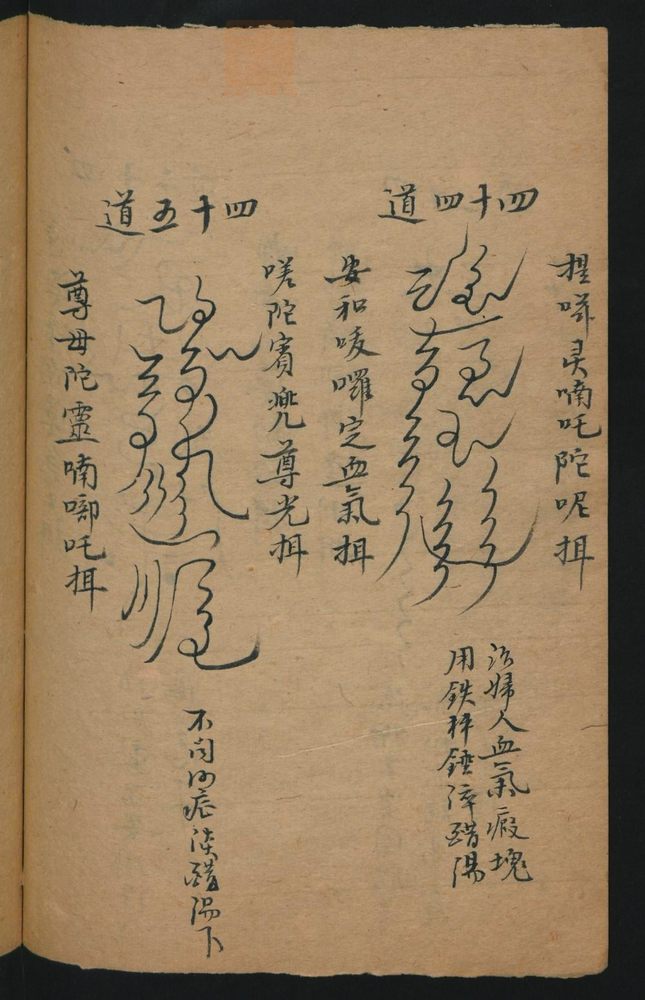 四十四道
捏㖿灵喃吒陀呢挕
安和唛囉定血氣挕
治婦人血氣瘕塊
用鉄秤錘淬醋湯
四十五道
嗟陀賓兠尊光挕
尊毋陀靈喃唧吒挕
不問 症淡醋湯下